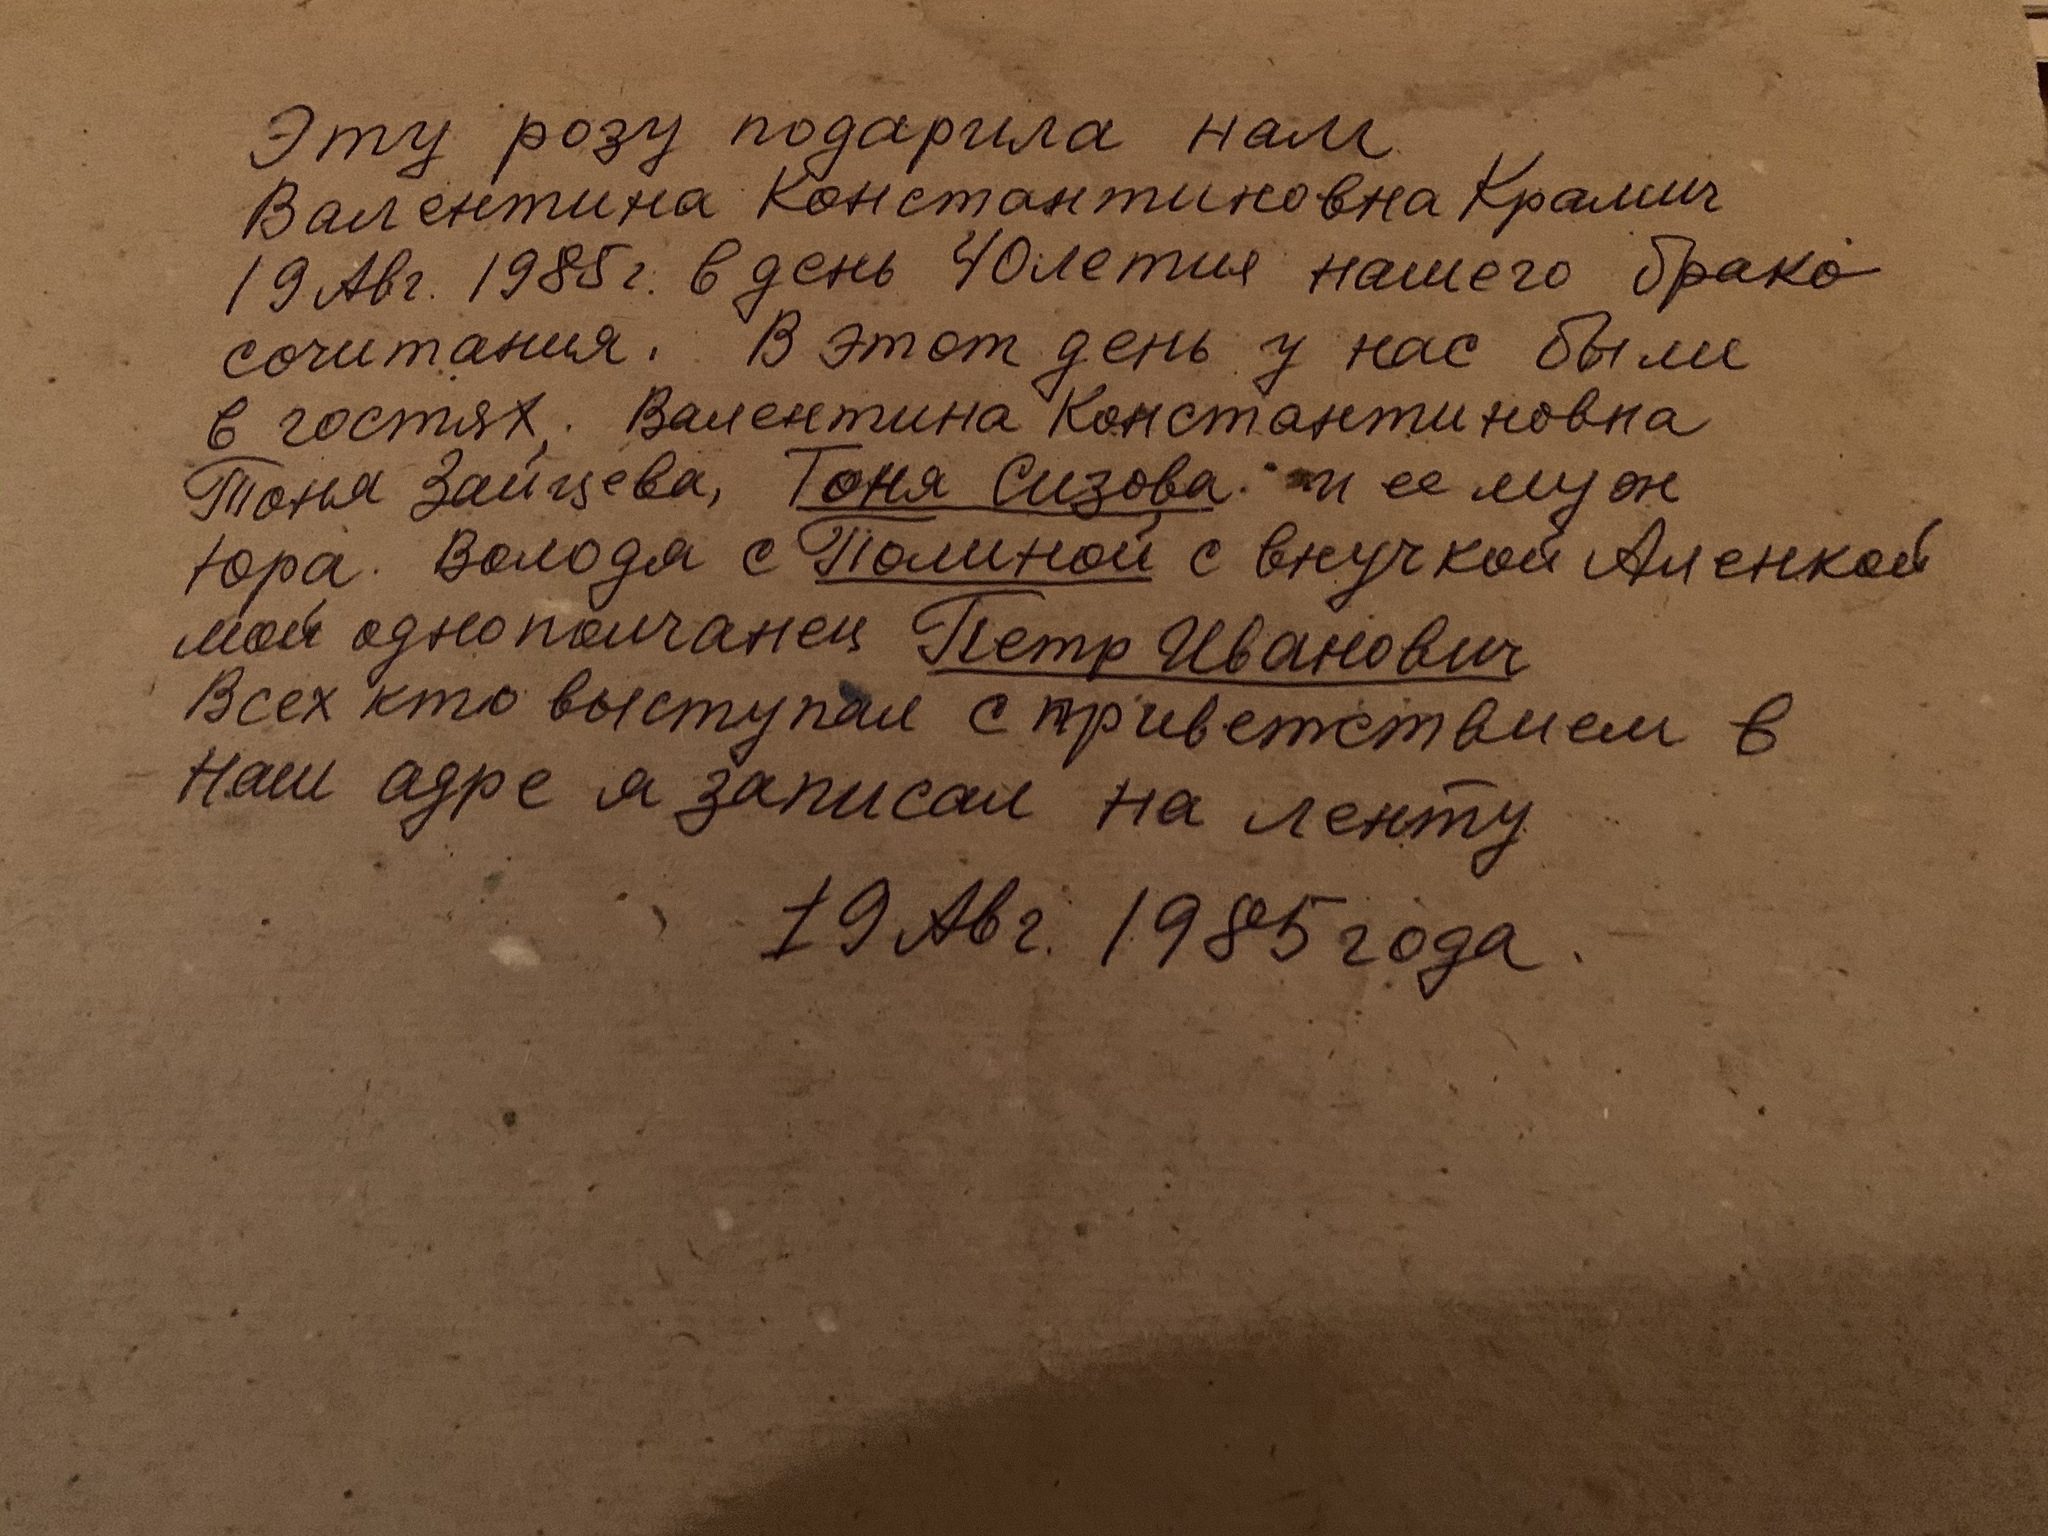 Эту розу подарила нам
Валентина Константиновна Крамич
19 Авг. 1985г. в день 40летия нашего брако
сочитания. В этот день у нас были
в гостях. Валентина Константиновна
Тоня Зайцева, Тоня Сизова. и ее муж
Юра. Володя с Полиной с внучкой Аленкой
мой однополчанец Петр Иванович
Всех кто выступал с приветствием в
наш адре я записал на ленту
19 Авг. 1985 года.